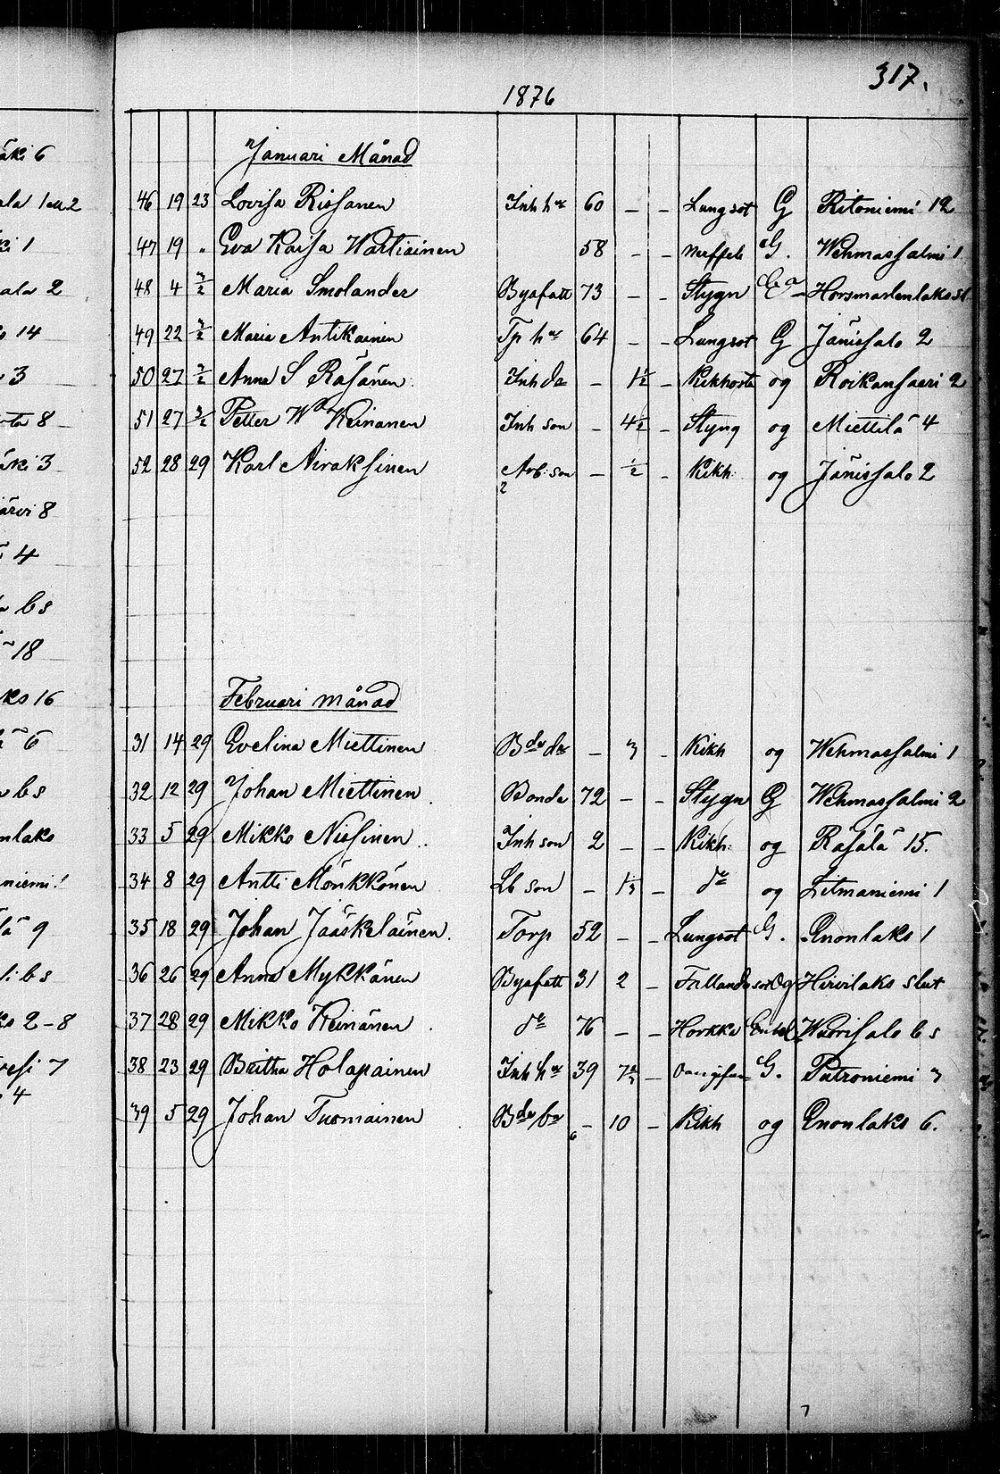 317.
1876
Januari Månad
46 19 23 Lovisa Rissanen Inh hu 60 - - Lungsot G Ritoniemi 12
47 19 " Eva Kaisa Wartiainen 58 - - G. Wehmassalmi 1
48 4 Maria Smolander Byafatt 73 - - Stygn Ea Horsmanlenlaks
49 22 Maria Antikainen Tp hu 64 - - Lungsot G Jänissalo 2
50 27 Anna S Räsänen Inh da - 1½ - Kikhosta og Roikansaari 2
51 27 Petter Wm Keinänen Inh son - 4½ - Styng og Miettilä 4
52 28 29 Karl Airaksinen Arb. son - ½ - Kikh. og Jänissalo 2
Februari månad
31 14 29 Evelina Miettinen Bde dr - 3 - Kikh og Wehmassalmi 1
32 12 29 Johan Miettinen Bonde 72 - - Stygn G Wehmassalmi 2
33 5 29 Mikko Nissinen Inh son 2 - - Kikh. og Räsälä 15.
34 8 29 Antti Mönkkönen Lb son - 1⅓ - do og Litmaniemi 1
35 18 29 Johan Jääskeläinen Torp 52 - - Lungsot G. Enonlaks 1
36 26 29 Anna Mykkänen Byafatt 31 2 - Og Hirvilaks slut
37 28 29 Mikko Keinänen do 76 - - Horkka Enkel Wuorisalo bs
38 23 29 Britha Holapainen Inh hu 39 - G. Putroniemi 3
39 5 29 Johan Tuomainen Bde - 10 - Kikh og Enonlaks 6.